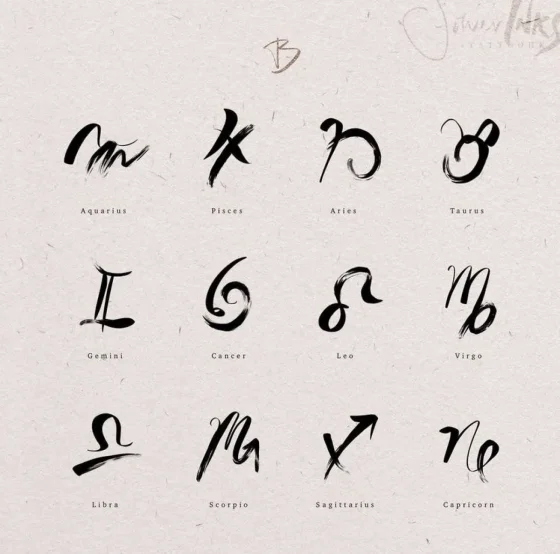 Silver INKS
B
Aquarius Pisces Aries Taurus
Gemini Cancer Leo Virgo
Libra Scorpio Sagittarius Capricorn